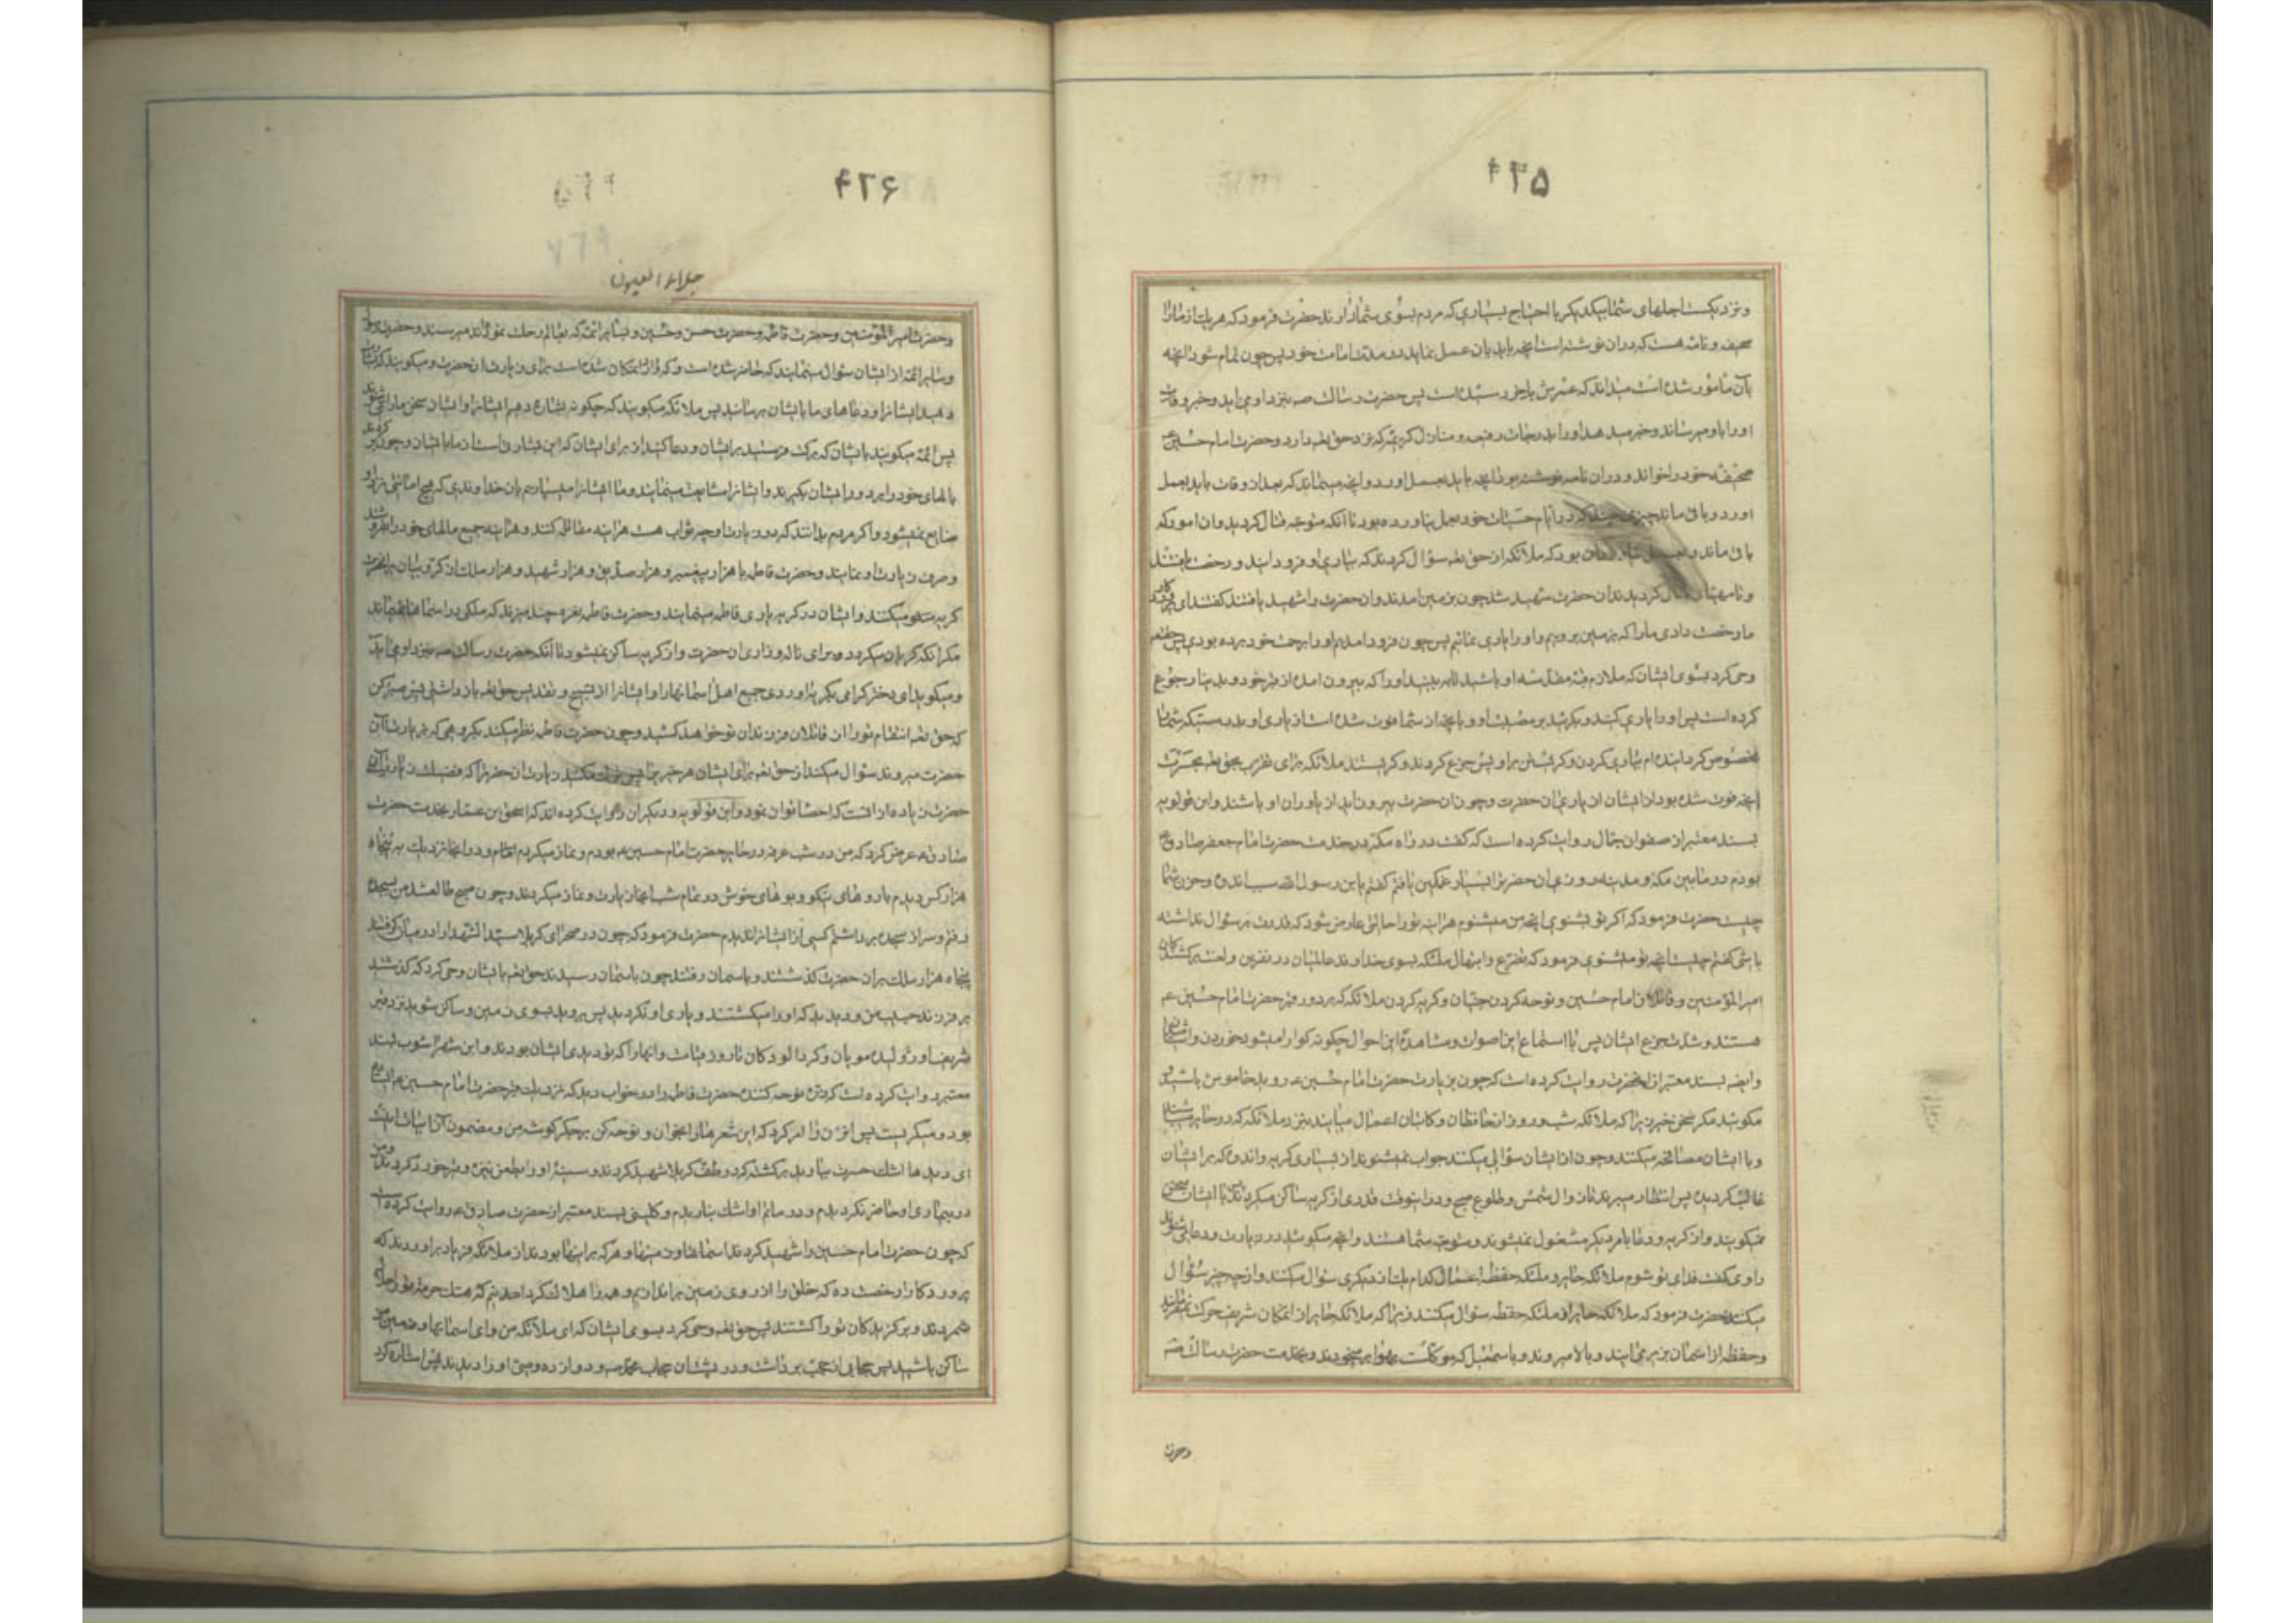 ونزدیکست اجلهای شما بیکدیکر با احتیاج بسیاری که مردم بسوی شما دارند حضرت فرمود که هر یک از ما را
صحیفه و نامه هست که در آن نوشته است آنچه باید بآن عمل نماید در مدت امامت خود پس چون تمام شود آنچه
بآن مأمور شده است میداند که عمرش باخر رسیده است پس حضرت رسالت صه بنزد او می آید و خبر وفات
او را باو میرساند و خبر میدهد او را بدرجات رفیعه و منازل کریمه که نزد حق تعه دارد و حضرت امام حسین ع
صحیفه خود را خواند و در آن نامه نوشته بود آنچه باید بعمل آورد و آنچه میماند که بعد از وفات باید بعمل
آورد و باقی ماند چیزی چند که در ایام حیات خود بعمل نیاورده بود تا آنکه متوجه قتال کردید و آن امور که
باقی ماند و بعمل نیاورد آن بود که ملائکه از حق تعه سؤال کردند که بیاری او فرود آیند و رخصت یافتند
قتال کردیدند آن حضرت شهید شد چون بزمین آمدند و آن حضرت را شهید یافتند کفتند ای پروردکار
ما رخصت دادی ما را که بزمین برویم و او را یاری نمائیم پس چون فرود آمدیم او را برحمت خود برده بودی پس حقتعه
وحی کرد بسوی ایشان که ملازم قبه مطهر او باشید تا ببینید او را که بیرون آمده از قبر خود و بدنیا رجوع
کرده است پس او را یاری کنید و بکریید بر مصیبت او و بآنچه از شما فوت شده است از یاری او بدرستیکه شما را
مخصوص کردانیده ام بیاری کردن و کریستن بر او پس جزع کردند و کریستند ملائکه برای تقرب بحق تعه بحسرت
آنچه فوت شده بود از ایشان از یاری آن حضرت و چون آن حضرت بیرون آید از یاوران او باشند و ابن قولویه
بسند معتبر از صفوان جمال روایت کرده است که کفت در راه مکه در خدمت حضرت امام جعفر صادق ع
بودم در مابین مکه و مدینه روزی آن حضرت را بسیار غمکین یافتم کفتم یابن رسول الله سبب اندوه و حزن شما
چیست حضرت فرمود که اکر تو بشنوی آنچه من میشنوم هر آینه تو را حالتی عارض شود که قدرت بر سؤال نداشته
باشی کفتم چیست آنچه تو میشنوی فرمود که تضرع و ابتهال ملئکه بسوی خداوند عالمیان در نفرین و لعنت بر کشندکان
امیر المؤمنین و قاتلان امام حسین و نوحه کردن جنیان و کریه کردن ملائکه که بر دور قبر حضرت امام حسین عم
هستند و شدت جزع ایشان پس با استماع این اصوات و مشاهدۀ این احوال چکونه کوارا میشود خوردن و آشامیدن
وایضه بسند معتبر از آنحضرت روایت کرده است که چون بزیارت حضرت امام حسین عه روید خاموش باشید و
مکوئید مکر سخن خیر زیرا که ملائکه شب و روز از حافظان و کاتبان اعمال میآیند بنزد ملائکه که در حایر میباشند
و با ایشان مصافحه میکنند و چون از ایشان سؤالی میکنند جواب نمیشنوند از بسیاری کریه و اندوه که بر ایشان
غالب کردیده پس انتظار میبرند تا زوال شمس و طلوع صبح و در اینوقت قدری از کریه ساکن میکردند با ایشان سخن
میکویند و از کریه و دعا بامر دیکر مشغول نمیشوند و متوجه شما هستند و آنچه میکوئید در زیارت و دعا میشنوند
راوی کفت فدای تو شوم ملائکه حایر و ملئکه حفظه اعمال کدام یک از دیکری سؤال میکنند و از چه چیز سؤال
میکنند حضرت فرمود که ملائکه حایر از ملئکه حفظه سؤال میکنند زیرا که ملائکه حایر از آنمکان شریف حرکت نمیفرمایند
و حفظه از آسمان بزیر می آیند و بالا میروند و باسمعیل که موکلست بهوا بر میخورند و بخدمت حضرت رسالت صه
وحضرت
۴۲۶
جلاء العیون
وحضرت امیر المؤمنین وحضرت فاطمه وحضرت حسن وحسین و سایر ائمه که بعالم رحلت نموده اند میرسند و حضرت رسول
وسایر ائمه از ایشان سؤال مینمایند که حاضر شده است و که وارد آنمکان شده است برای زیارت آن حضرت و میکویند که بشارت
دهید ایشانرا و دعاهای ما بایشان برسانید پس ملائکه میکویند که چکونه بشارت دهیم ایشانرا و ایشان سخن ما را نمیشنوند
پس ائمه میکویند بایشان که برکت فرستید بر ایشان و دعا کنید از برای ایشان که این بشارتی است از ما بایشان و چون برکردند
بالهای خود را بر دور ایشان بکیرند و ایشانرا مشایعت مینمایند و ما ایشانرا میسپاریم بآن خداوندی که هیچ امانتی نزد او
ضایع نمیشود و اکر مردم بدانند که در زیارت او چه ثواب هست هر آینه مقاتله کنند و هر آینه جمیع مالهای خود را بفروشند
و صرف زیارت او نمایند و حضرت فاطمه با هزار پیغمبر و هزار صدیق و هزار شهید و هزار ملک از کروبیان بر آنحضرت
کریه میکنند و ایشان در کریه یاری فاطمه مینمایند و حضرت فاطمه نعرۀ چند میزند که ملکی در آسمانها نمیماند
مکر آنکه کریان میکردد برای ناله و زاری آن حضرت و از کریه ساکن نمیشود تا آنکه حضرت رسالت صه بنزد او می آید
و میکوید ای دختر کرامی بکریه آوردی جمیع اهل آسمانها را و ایشانرا از تسبیح و تقدیس حق تعه باز داشتی پس صبر کن
که حق تعه انتقام تو را از قاتلان فرزندان تو خواهد کشید و چون حضرت فاطمه نظر میکند بکروهی که بزیارت آن
حضرت میروند سؤال میکند از حق تعه برای ایشان هر خیر را پس ترک مکنید زیارت آن حضرت را که فضیلت زیارت آن
حضرت زیاده از آنست که احصا توان نمود و ابن قولویه و دیکران روایت کرده اند که اسحق بن عمار بخدمت حضرت
صادق عه عرض کرد که من در شب عرفه در حایر حضرت امام حسین عه بودم و نماز میکردم و در آنجا نزدیک به پنجاه
هزار کس دیدم با روهای نیکو و بوهای خوش در تمام شب آنجا زیارت و نماز میکردند و چون صبح طالع شد من بسجده
رفتم و سر از سجده برداشتم کسی از ایشانرا ندیدم حضرت فرمود که چون در صحرای کربلا سید الشهدا را در میان کرفتند
پنجاه هزار ملک بر آن حضرت کذشتند و باسمان رفتند چون باسمان رسیدند حق تعه بایشان وحی کرد که کذشتید
بر فرزند حبیب من و دیدید که او را میکشتند و یاری او نکردید پس بروید بسوی زمین و ساکن شوید نزد قبر
شریف او ژولیده مویان و کرد آلودکان تا روز قیامت و آنها را که تو دیدی ایشان بودند و ابن شهرآشوب بسند
معتبر روایت کرده است که زن نوحه کننده حضرت فاطمه را در خواب دید که نزدیک قبر حضرت امام حسین عه ایستاده
بود و میکریست پس آن زن را امر کرد که این شعرها را بخوان و نوحه کن بر جکرکوشه من و مضمون آن ابیات اینست
ای دیدها اشک حسرت ببارید بر کشته که در طف کربلا شهید کردند و سینۀ او را بطعن نیزه و تیر خورد کردند و من
در بیماری او حاضر نکردیدم و در ماتم او اشک نباریدم و کلینی بسند معتبر از حضرت صادق عه روایت کرده است
که چون حضرت امام حسین را شهید کردند آسمانها و زمینها و هر که بر اینها بودند از ملائکه فریاد برآوردند که
پروردکارا رخصت ده که خلق را از روی زمین براندازیم و همه را هلاک کردانیم که هتک حرمت تو را حلال
شمردند و برکزیدکان تو را کشتند پس حق تعه وحی کرد بسوی ایشان که ای ملائکه من و ای آسمانها و زمین من
ساکن باشید پس حجابی از حجب برداشت و در پشت آن حجاب محمد صه و دوازده وصی او را دیدند پس اشاره کرد